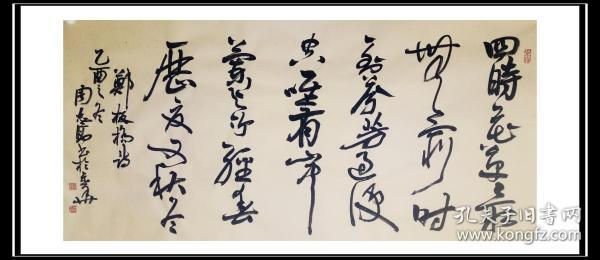 四時花草最
無窮時
到芬芳過便
空唯有山中
蘭与竹經春
歷夏又秋冬
鄭板橋詩
乙酉之冬
周志高書於
孔夫子旧书网
www.kongfz.com